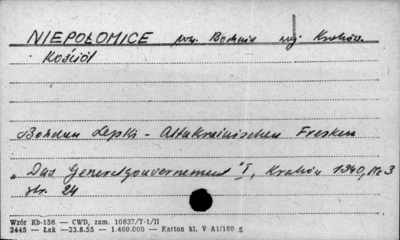 NIEPOŁOMICE pow. Bochnia woj. Kraków.
Kościół
Bohdan Lepki - Altukrainischen Fresken
"Das Generalgouvernement" I, Kraków 1940, Nr 3
str. 24
Wzór Kb-156 — CWD, zam. 10837/T-1/II
2445 — Łak —23.8.55 — 1.460.000 — Karton kl. V A1/180 g